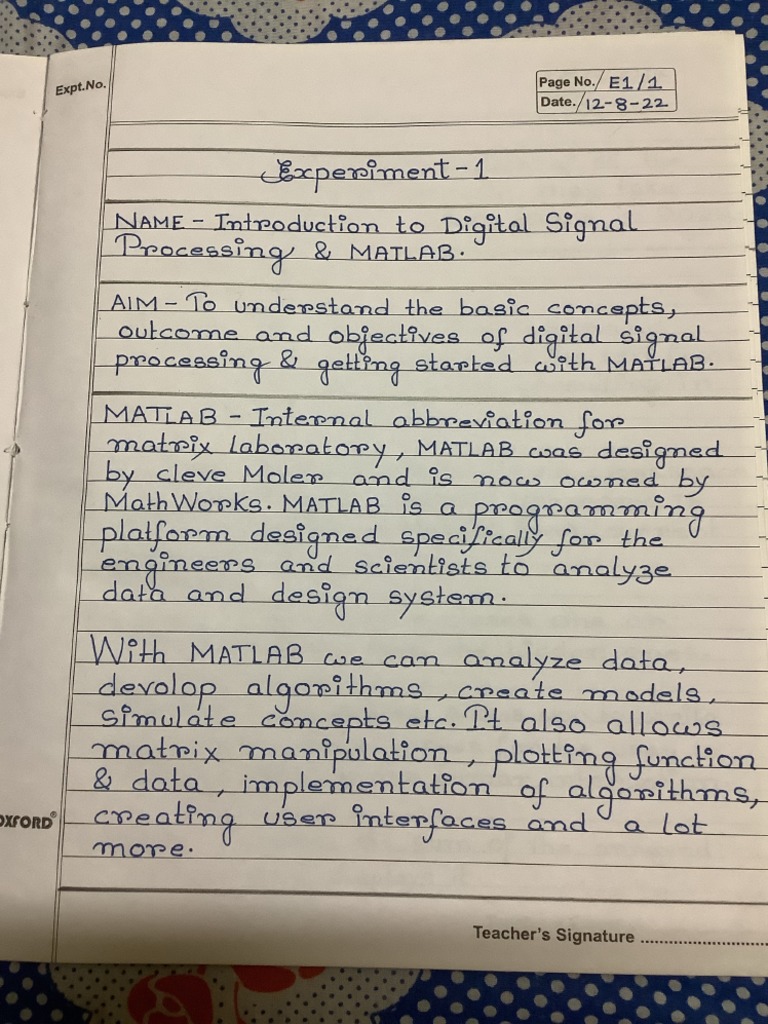 Expt.No.
Page No. E1/1
Date. 12-8-22
Experiment-1
NAME - Introduction to Digital Signal
Processing & MATLAB.
AIM - To understand the basic concepts,
outcome and objectives of digital signal
processing & getting started with MATLAB.
MATLAB - Internal abbreviation for
matrix laboratory, MATLAB was designed
by cleve Moler and is now owned by
MathWorks. MATLAB is a programming
platform designed specifically for the
engineers and scientists to analyze
data and design system.
With MATLAB we can analyze data,
devolop algorithms, create models,
simulate concepts etc. It also allows
matrix manipulation, plotting function
& data, implementation of algorithms,
creating user interfaces and a lot
more.
OXFORD®
Teacher's Signature ........................